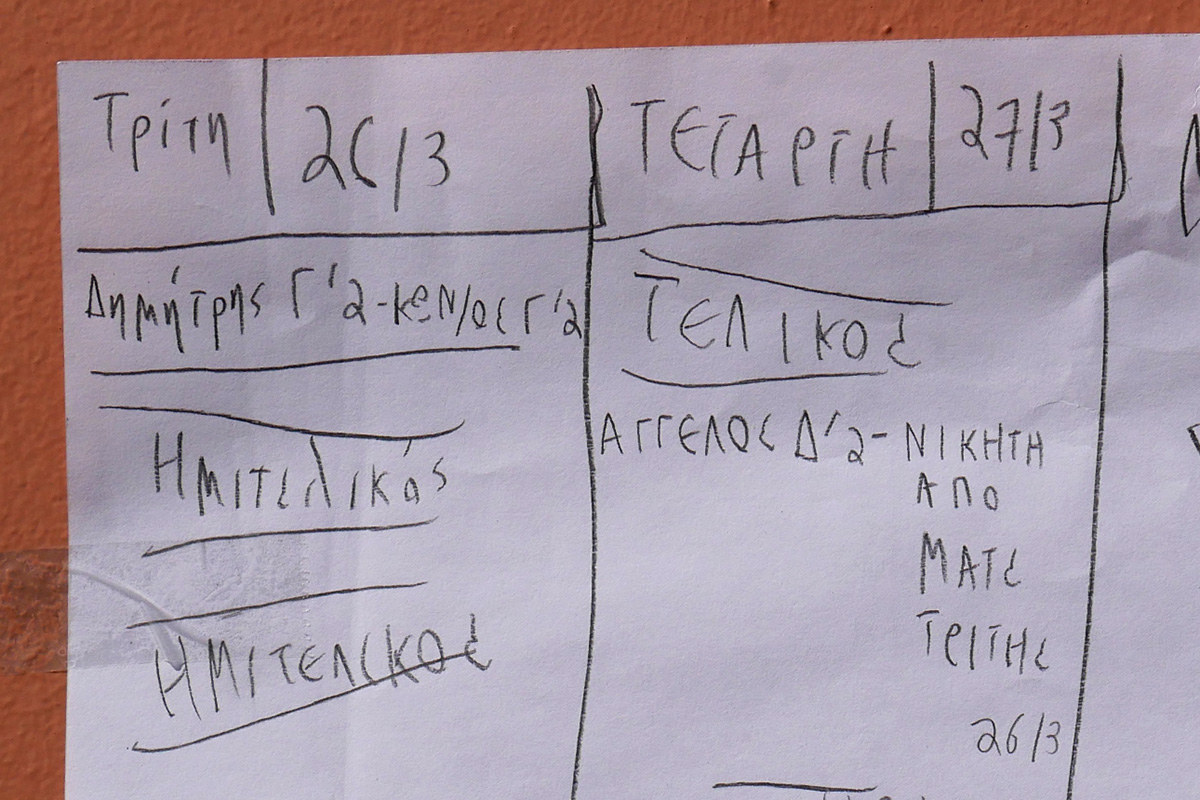 Τρίτη 26/3
Δημήτρης Γ'2-ΚεΝ/ος Γ'2
Ημιτελικός
ΗΜΙΤΕΛΙΚΟΣ
ΤΕΤΑΡΤΗ 27/3
ΤΕΛΙΚΟΣ
ΑΓΓΕΛΟΣ Δ'2-ΝΙΚΗΤΗ
ΑΠΟ
ΜΑΤΣ
ΤΡΙΤΗΣ
26/3